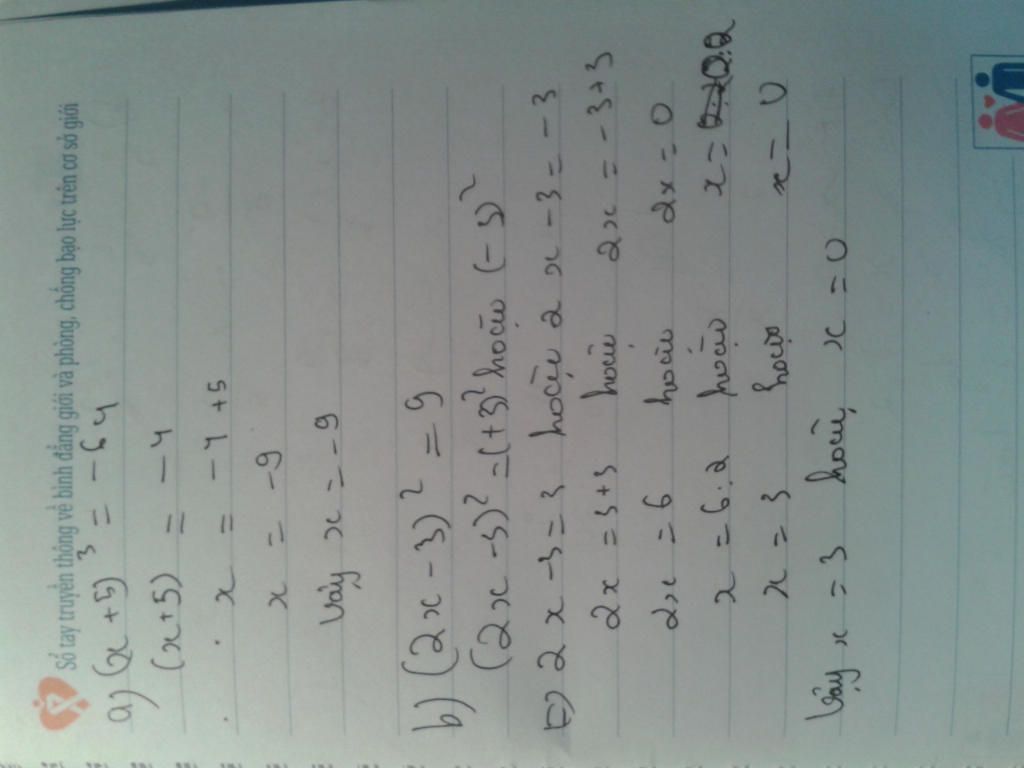 Sổ tay truyền thông về bình đẳng giới và phòng, chống bạo lực trên cơ sở giới
a) (x + 5)³ = -64
(x+5) = -4
x = -4 +5
x = -9
Vậy x = -9
b) (2x - 3)² = 9
(2x - 3)² = (+3)² hoặc (-3)²
2x - 3 = 3 hoặc 2x - 3 = -3
2x = 3+3 hoặc 2x = -3+3
2x = 6 hoặc 2x = 0
x = 6:2 hoặc x = 0:2
x = 3 hoặc x = 0
Vậy x = 3 hoặc x = 0